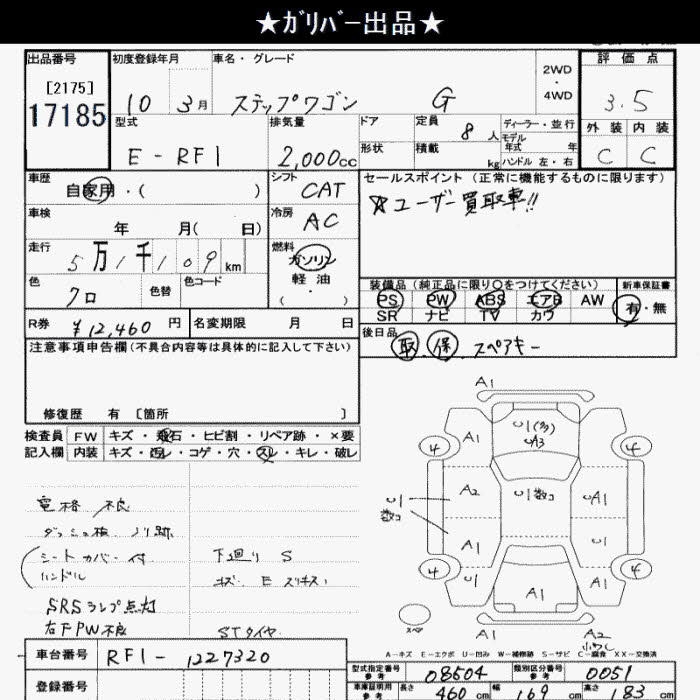 ★ガリバー出品★
出品番号
[2175]
17185
初度登録年月
10 3月
車名・グレード
ステップワゴン G
2WD
・
4WD
評価点
3.5
外装 内装
C C
型式
E-RF1
排気量
2,000cc
ドア
形状
定員 8人
積載 kg
ディーラー・並行
モデル
年式 年
ハンドル 左・右
車歴
自家用・( )
シフト
CAT
セールスポイント (正常に機能するものに限ります)
☆ユーザー買取車!!
車検
年 月( 日)
冷房
AC
走行
5万1千109km
燃料
ガソリン
軽油
( ・ )
色
クロ
色替
色コード
装備品(純正品に限り○をつけてください)
PS PW ABS エアB AW
SR ナビ TV カワ
新車保証書
有・無
R券 ¥12,460円
名変期限 月 日
後日品
取.保.スペアキー
注意事項申告欄(不具合内容等は具体的に記入して下さい)
修復歴 有 [箇所 ]
検査員
記入欄
FW キズ・飛石・ヒビ割・リペア跡・×要
内装 キズ・汚レ・コゲ・穴・スレ・キレ・破レ
電格 不良
シートカバー付
ハンドル
SRSランプ点灯
右FPW不良
下廻り S
STタイヤ
A1
A1
U1(多)
UA3
4
4
A2
U1数コ
UA1
U1
数コ
A1
A1
4
4
U1
A1
A1
スペア
A1
A2
A-キズ E-エクボ U-凹み W-補修跡 S-サビ C-腐食 XX-交換済
車台番号
RF1-1227320
登録番号
型式指定番号
参考
08504
類別区分番号
参考
0051
車庫証明用
参考
長さ 460cm
幅 169cm
高さ 183cm